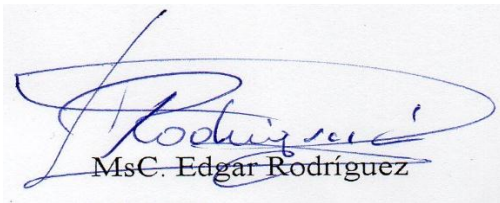 Rodríguez
MsC. Edgar Rodríguez